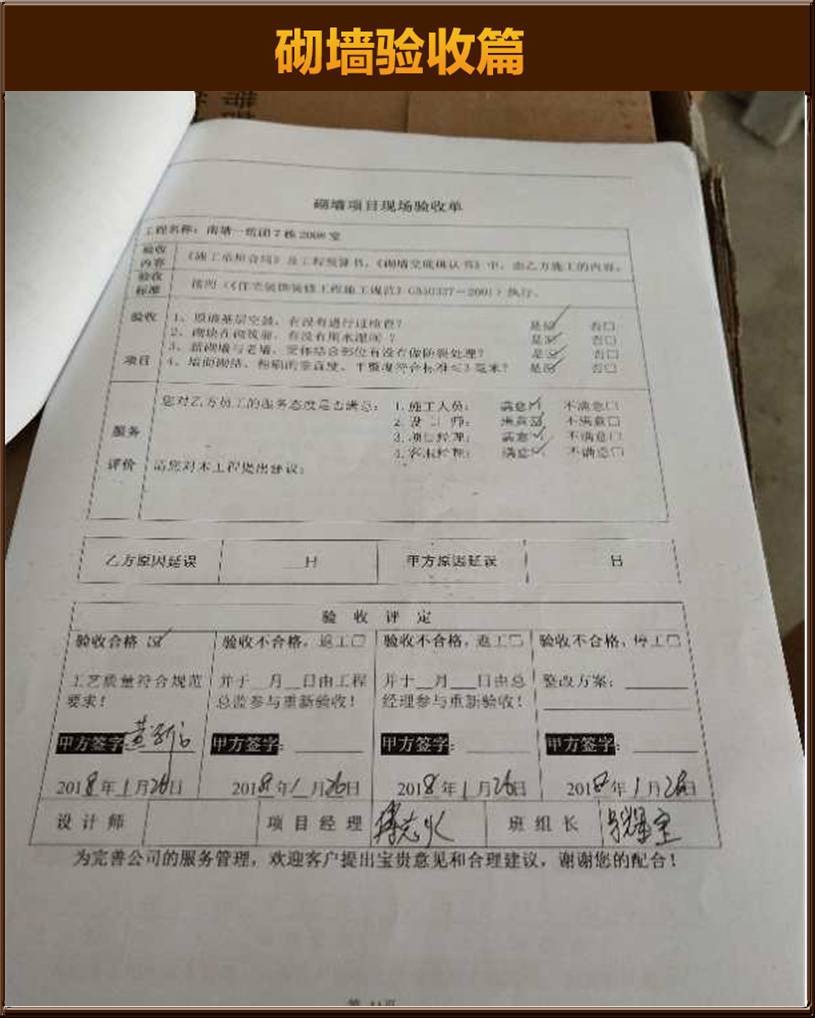 砌墙验收篇
砌墙项目现场验收单
工程名称：南塘一组团7栋2006室
验收内容 《施工承包合同》及工程预算书，《砌墙交底确认书》中，由乙方施工的内容。
验收标准 按照《住宅装饰装修工程施工规范》GB50327－2001）执行。
验收项目
1、原墙基层空鼓，有没有进行过检查？ 是☑ 否□
2、砌块在砌筑前，有没有用水湿润？ 是☑ 否□
3、新砌墙与老墙、交体结合部位有没有做防裂处理？ 是☑ 否□
4、墙面砌结、粉刷的垂直度、平整度符合标准≤3毫米？ 是☑ 否□
服务评价
您对乙方员工的服务态度是否满意： 1.施工人员： 满意☑ 不满意□
2.设计师： 满意☑ 不满意□
3.项目经理： 满意☑ 不满意□
4.客服经理： 满意☑ 不满意□
请您对本工程提出建议：
乙方原因延误 日 甲方原因延误 日
验收评定
验收合格☑ 验收不合格，返工□ 验收不合格，返工□ 验收不合格、停工□
工艺质量符合规范 并于__月__日由工程 并于__月__日由总 整改方案：
要求！ 总监参与重新验收！ 经理参与重新验收！
甲方签字 甲方签字： 甲方签字： 甲方签字：
2018年1月26日 2018年1月26日 2018年1月26日 2018年1月26日
设计师 项目经理 班组长
为完善公司的服务管理，欢迎客户提出宝贵意见和合理建议，谢谢您的配合！